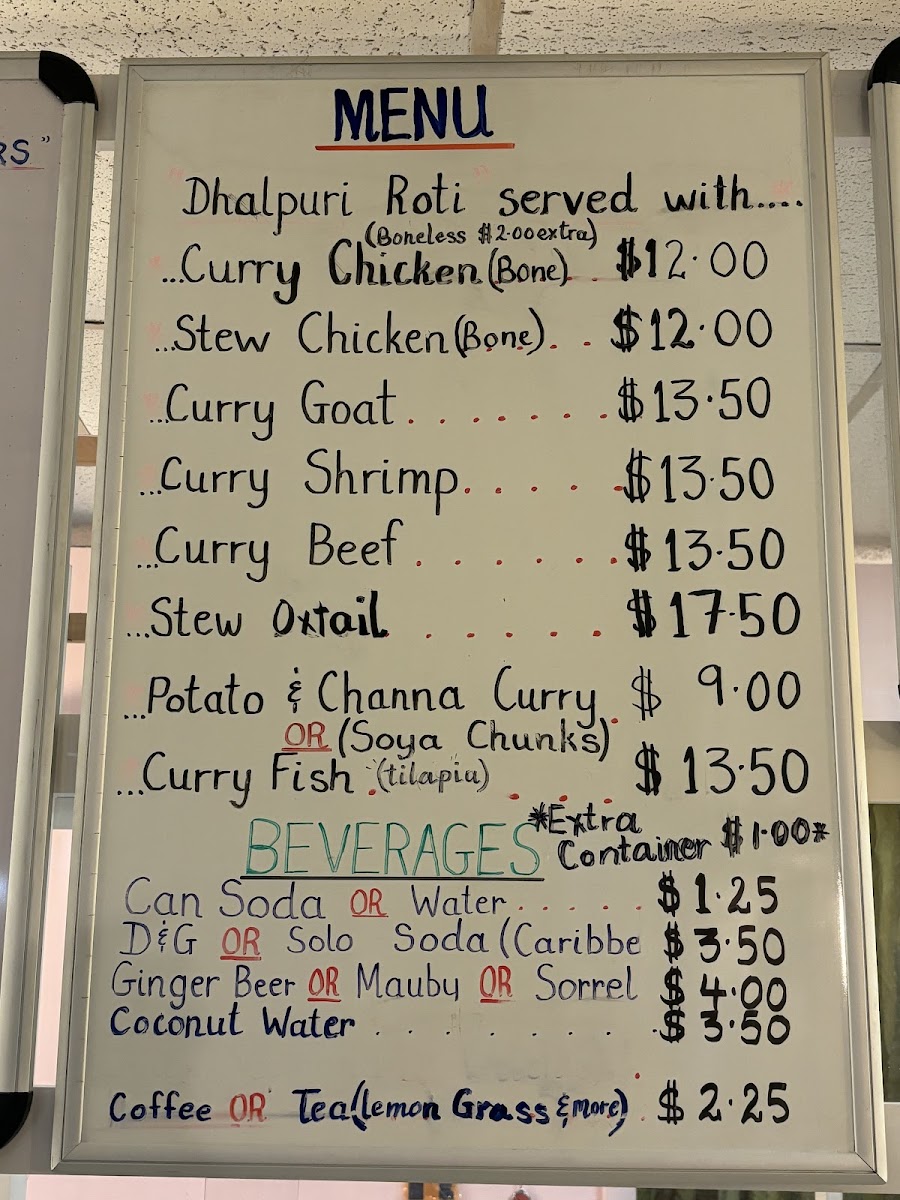 RS"
MENU
"Dhalpuri Roti" served with....
(Boneless $2.00 extra)
...Curry Chicken (Bone). . $12.00
...Stew Chicken (Bone). . . $12.00
...Curry Goat. . . . . . . $13.50
...Curry Shrimp. . . . . $13.50
...Curry Beef. . . . . . . $13.50
...Stew Oxtail . . . . . $17.50
...Potato & Channa Curry. $ 9.00
OR (Soya Chunks)
...Curry Fish (tilapia) . . . . $ 13.50
*Extra Container $1.00*
BEVERAGES
Can Soda OR Water. . . . . $ 1.25
D&G OR Solo Soda (Caribbe $ 3.50
Ginger Beer OR Mauby OR Sorrel $ 4.00
Coconut Water . . . . . . . . $ 3.50
Coffee OR Tea (lemon Grass & more) . $ 2.25